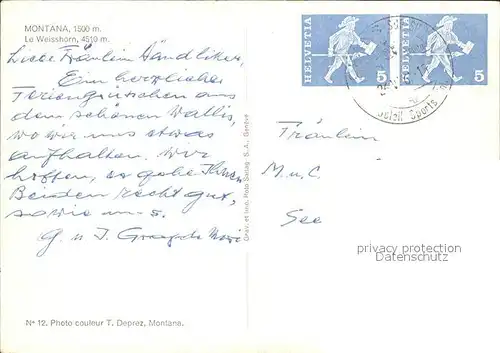 MONTANA, 1500 m.
Le Weisshorn, 4510 m.
Liebe Fräulein Händliker,
Ein herzliches
Feriengrüsschen aus
dem schönen Wallis,
wo wir uns etwas
aufhalten. Wir
hoffen, es gehe Ihnen
Beiden recht gut,
sowie uns.
G. u J.
Grav. et imp. Photo Sartag S.A., Genève
No 12. Photo couleur T. Deprez, Montana.
HELVETIA 5
HELVETIA 5
Sports
Fräulein
M. u. C.
See
privacy protection
Datenschutz